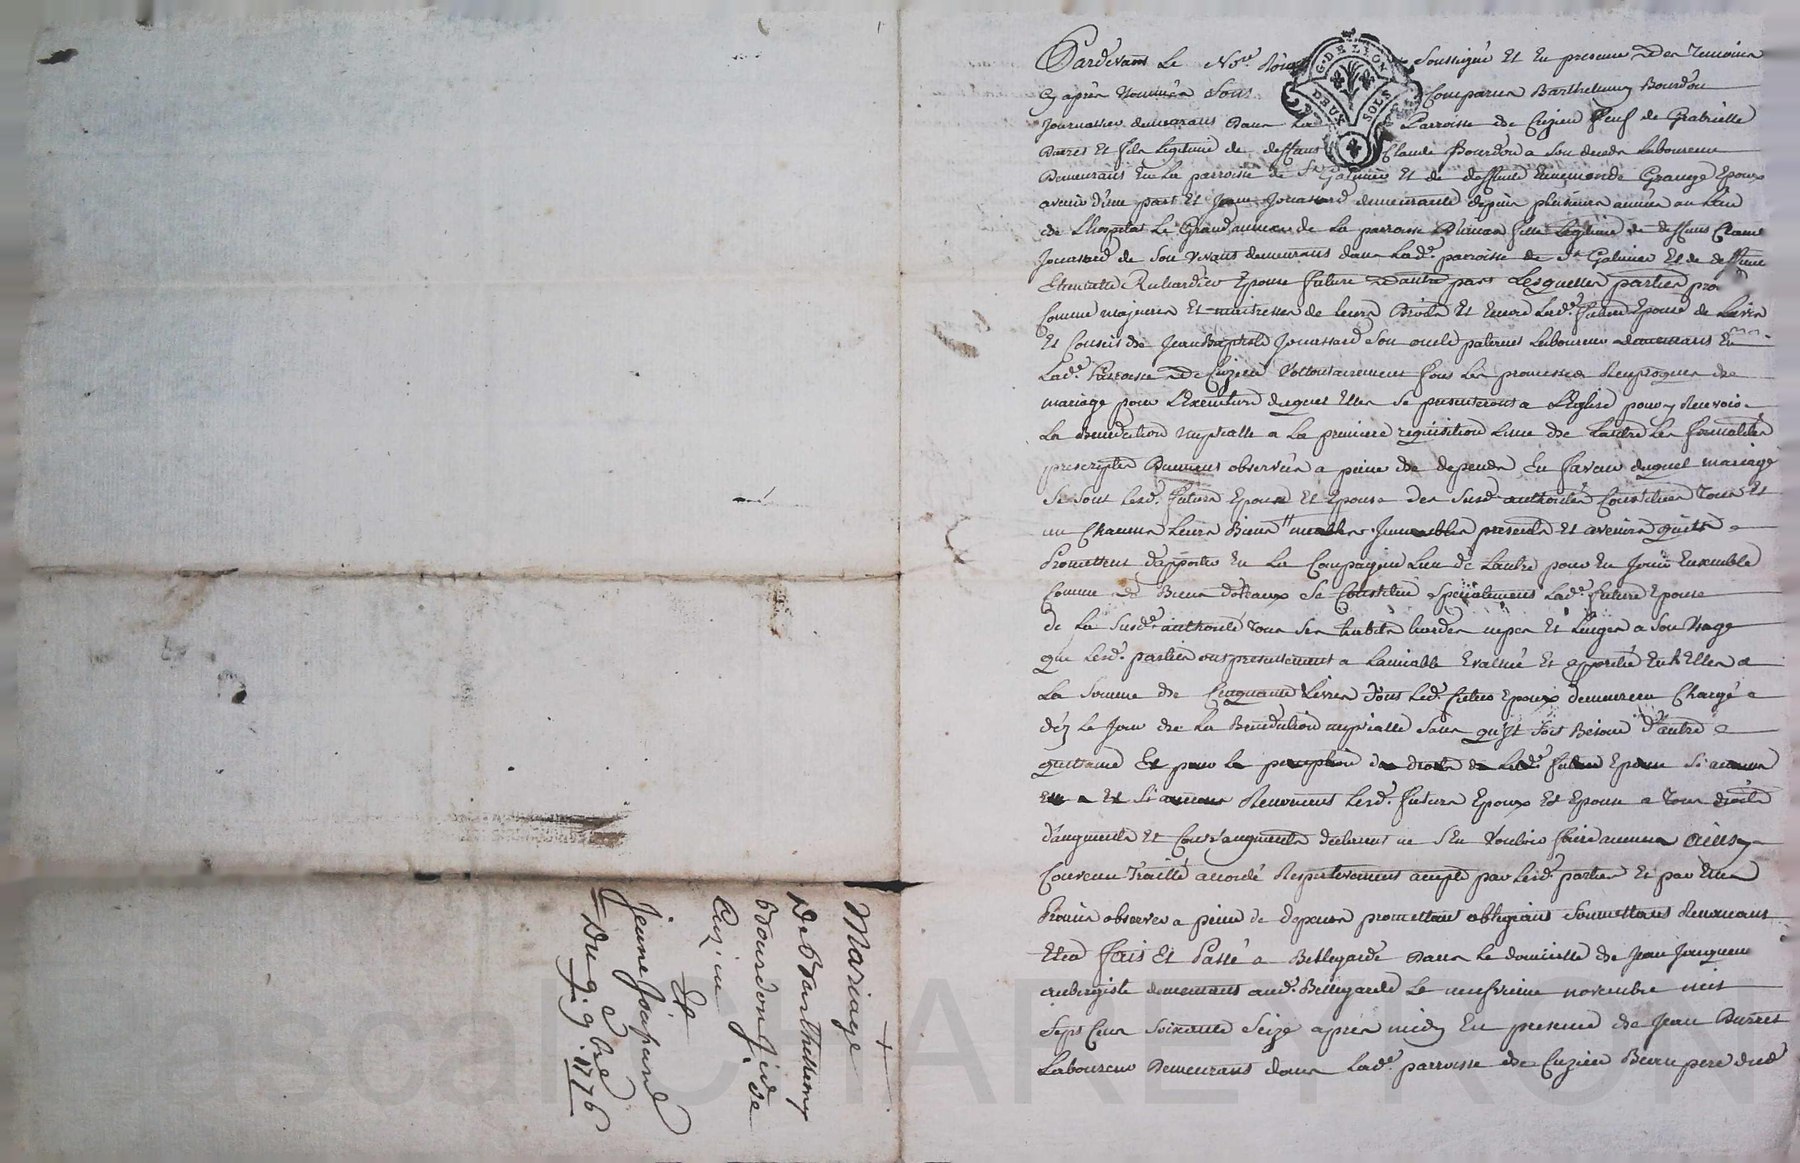 Mariage
De Barthelemy
Bourdon j. de
Cuzieu
Et
Jeanne
Du 9e 9bre 1776
G. DE LYON
DEUX SOLS
Pardevant Le Nore Soussigné Et En presence des Temoins
Cy après Nommés sont Comparus Barthelemy Bourdon
Journalier demeurant Dans La Parroisse de Cuzieu Veuf de Gabrielle
Barret Et fils Legitime de deffunt Claude Bourdon a Son vivant Laboureur
Demeurant En La parroisse de St Galmier Et de deffunte Grange Epoux
avenir d'une part Et demeurante depuis plusieurs années au Lieu
de Lhopital Le Grand annexe de La parroisse fille Legitime de deffunt Claude
de Son Vivant demeurant dans Lade parroisse de St Galmier Et de deffunte
Epouse future d'autre part Lesquelles parties
Comme majeures Et maitresses de Leurs Droits Et Encore Lade future Epouse de Lavis
Et Conseil de Jean Baptiste Son oncle paternel Laboureur demeurant En
Lade Parroisse de Cuzieu Vollontairement font Les promesses Reciproques de
mariage pour L'Execution duquel Elles Se presenteront a L'Eglise pour y Recevoir
La Benediction nuptialle a La premiere requisition Lune de Lautre Les formalités
prescriptes Dument observées a peine de depends En faveur duquel mariage
Se Sont Lesd. futurs Epoux Et Epouse des Susd. authorités Constitués Tous Et
un Chacuns Leurs Biens meubles Immeubles presents Et avenirs quils
Promettent d'apporter En La Compagnie Lun de Lautre pour En Jouir Ensemble
Comme de Biens dotaux Se Constitue specialement Lade future Epouse
de La Susd. authorité Tous Ses habits hardes nipes Et Linges a Son Usage
que Lesd. parties ont presentement a Lamiable Evalué Et apprétié Entre Elles a
La Somme de Cinquante Livres dont Led. futur Epoux demeurera Chargé
déz Le Jour de La Benediction nuptialle Sans qu'Il Soit Besoin d'autre
quittance Et pour La perception des droits de Lade future Epouse Si aucuns
Et Si aucuns Renoncent Lesd. futurs Epoux Et Epouse a Tous droits
d'augments Et Contraugments declarent ne S'En Vouloir faire aucuns ainsy
Convenu Traitté accordé Respectivement accepté par Lesd. parties Et par Elles
Promis observer a peine de depens promettant obligeant Soumettant Renonceant
fait Et Passé a Bellegarde Dans Le domicille de Jean
aubergiste demeurant aud. Bellegarde Le neufvieme novembre mil
Sept Cent Soixante Seize après midy En presence de Jean Barret
Laboureur Demeurant dans Lade parroisse de Cuzieu Beaupere dud.